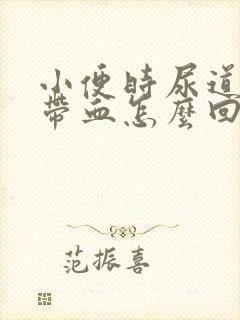 小便時尿道
帶血怎麼回
范振喜